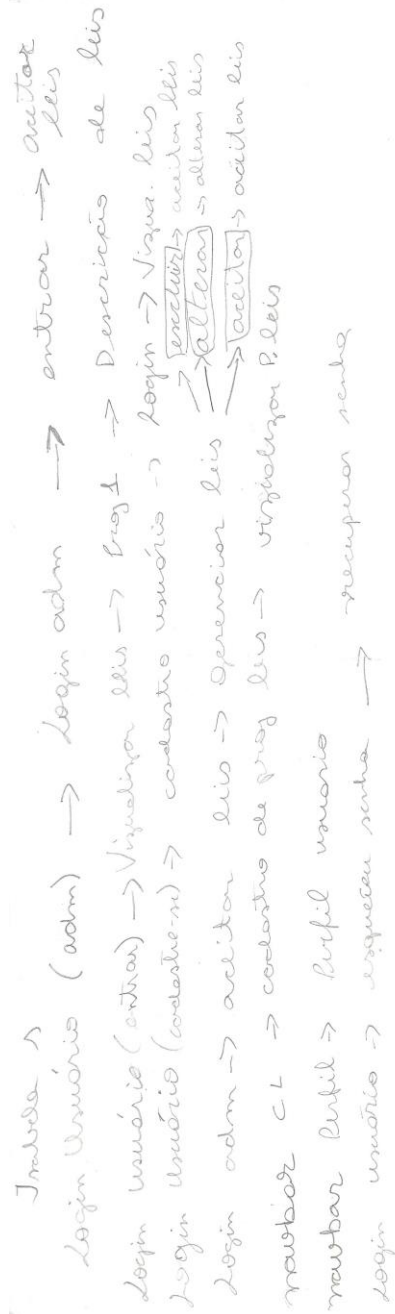 Isabela S
Login Usuário (adm) → Login adm → entrar → aceitar leis
Login usuário (entrar) → Visualizar leis → Proj 1 → Descrição de leis
Login usuário (cadastre-se) → cadastro usuário → Login → Visua. leis
Login adm → aceitar leis → Gerenciar leis → excluir → aceitar leis
→ alterar → alterar leis
→ aceitar → aceitar leis
navbar CL → cadastro de proj leis → visualizar P. leis
navbar Perfil → Perfil usuario
Login usuário → esqueceu senha → recuperar senha